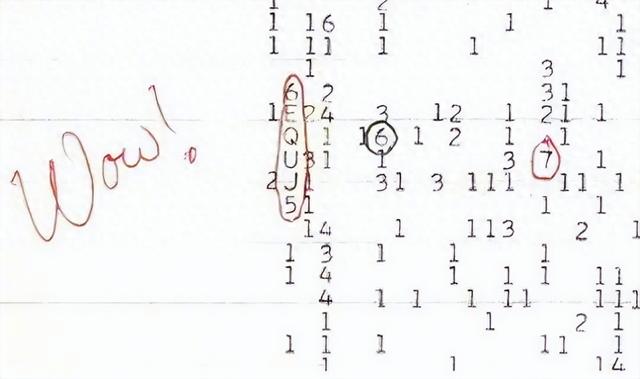 1 16 1 1 1
1 11 1 1 11
1 3 1
6 2 31
1 E24 3 12 1 21 1
Q 1 16 1 2 1 1
U31 1 3 7 1
2J1 31 3 111 11 1
51 1 1
14 1 113 2 1
1 3 1 1 1
1 4 1 1 1 11
4 1 1 1 11 111
1 1 2 1
1 1 1 11 1
1 1 14
Wow!